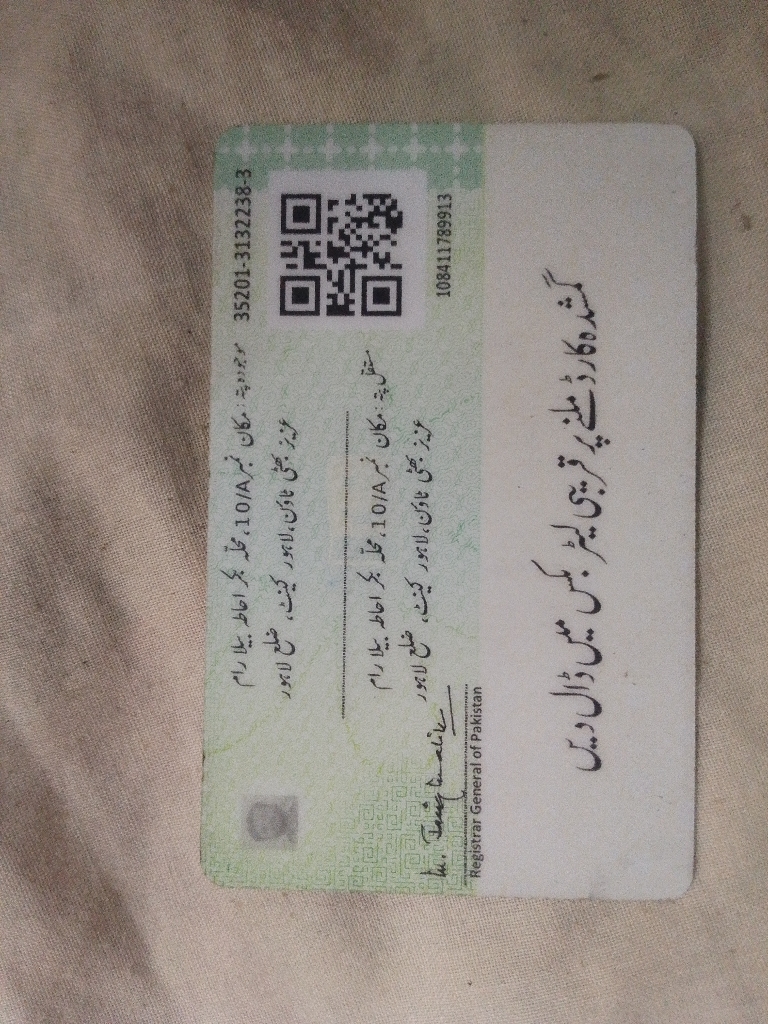 35201-3132238-3
موجودہ پتہ: مکان نمبر 10/A، محلہ بکر احاطہ بیلا رام
عزیز بھٹی ٹاؤن، لاہور کینٹ، ضلع لاہور
مستقل پتہ: مکان نمبر 10/A، محلہ بکر احاطہ بیلا رام
عزیز بھٹی ٹاؤن، لاہور کینٹ، ضلع لاہور
108411789913
Registrar General of Pakistan
گمشدہ کارڈ ملنے پر قریبی لیٹر بکس میں ڈال دیں